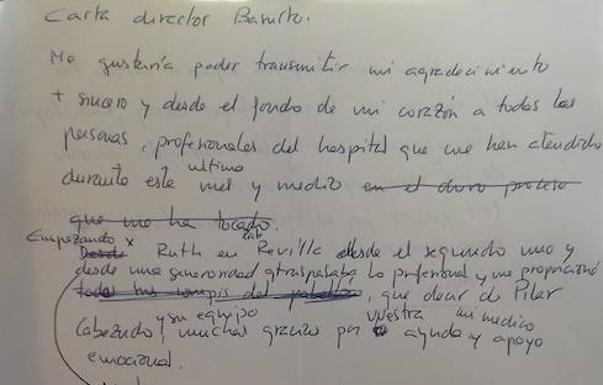 Carta director Basurto.
Me gustaría poder transmitir mi agradecimiento
+ sincero y desde el fondo de mi corazón a todas las
personas, profesionales del hospital que me han atendido
durante este último mes y medio en el duro proceso
que me ha tocado.
Empezando x Ruth en Revilla desde el segundo uno y
desde una generosidad q traspasaba lo profesional y me proporcionó
todos mis compis del pabellón, que decir de Pilar
Cabezudo y su equipo, muchas gracias por vuestra ayuda y apoyo mi medico
emocional.